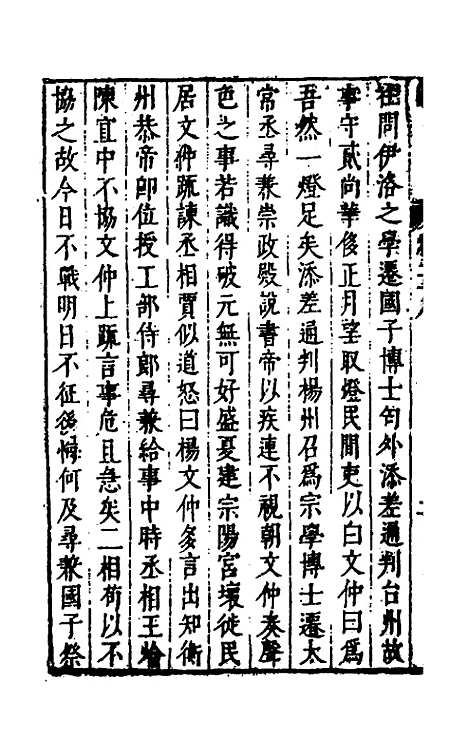 往問伊洛之學遷國子博士匄外添差通判台州故
事守貳尚華侈正月望取燈民間吏以白文仲曰爲
吾然一燈足矣添差通判楊州召爲宗學博士遷太
常丞尋兼崇政殿說書帝以疾連不視朝文仲奏聲
色之事若識得破元無可好盛夏建宗陽宮壞徙民
居文仲疏諫丞相賈似道怒曰楊文仲多言出知衡
州恭帝卽位授工部侍郎尋兼給事中時丞相王爚
陳宜中不協文仲上疏言事危且急矣二相苟以不
協之故今日不戰明日不征後悔何及尋兼國子祭